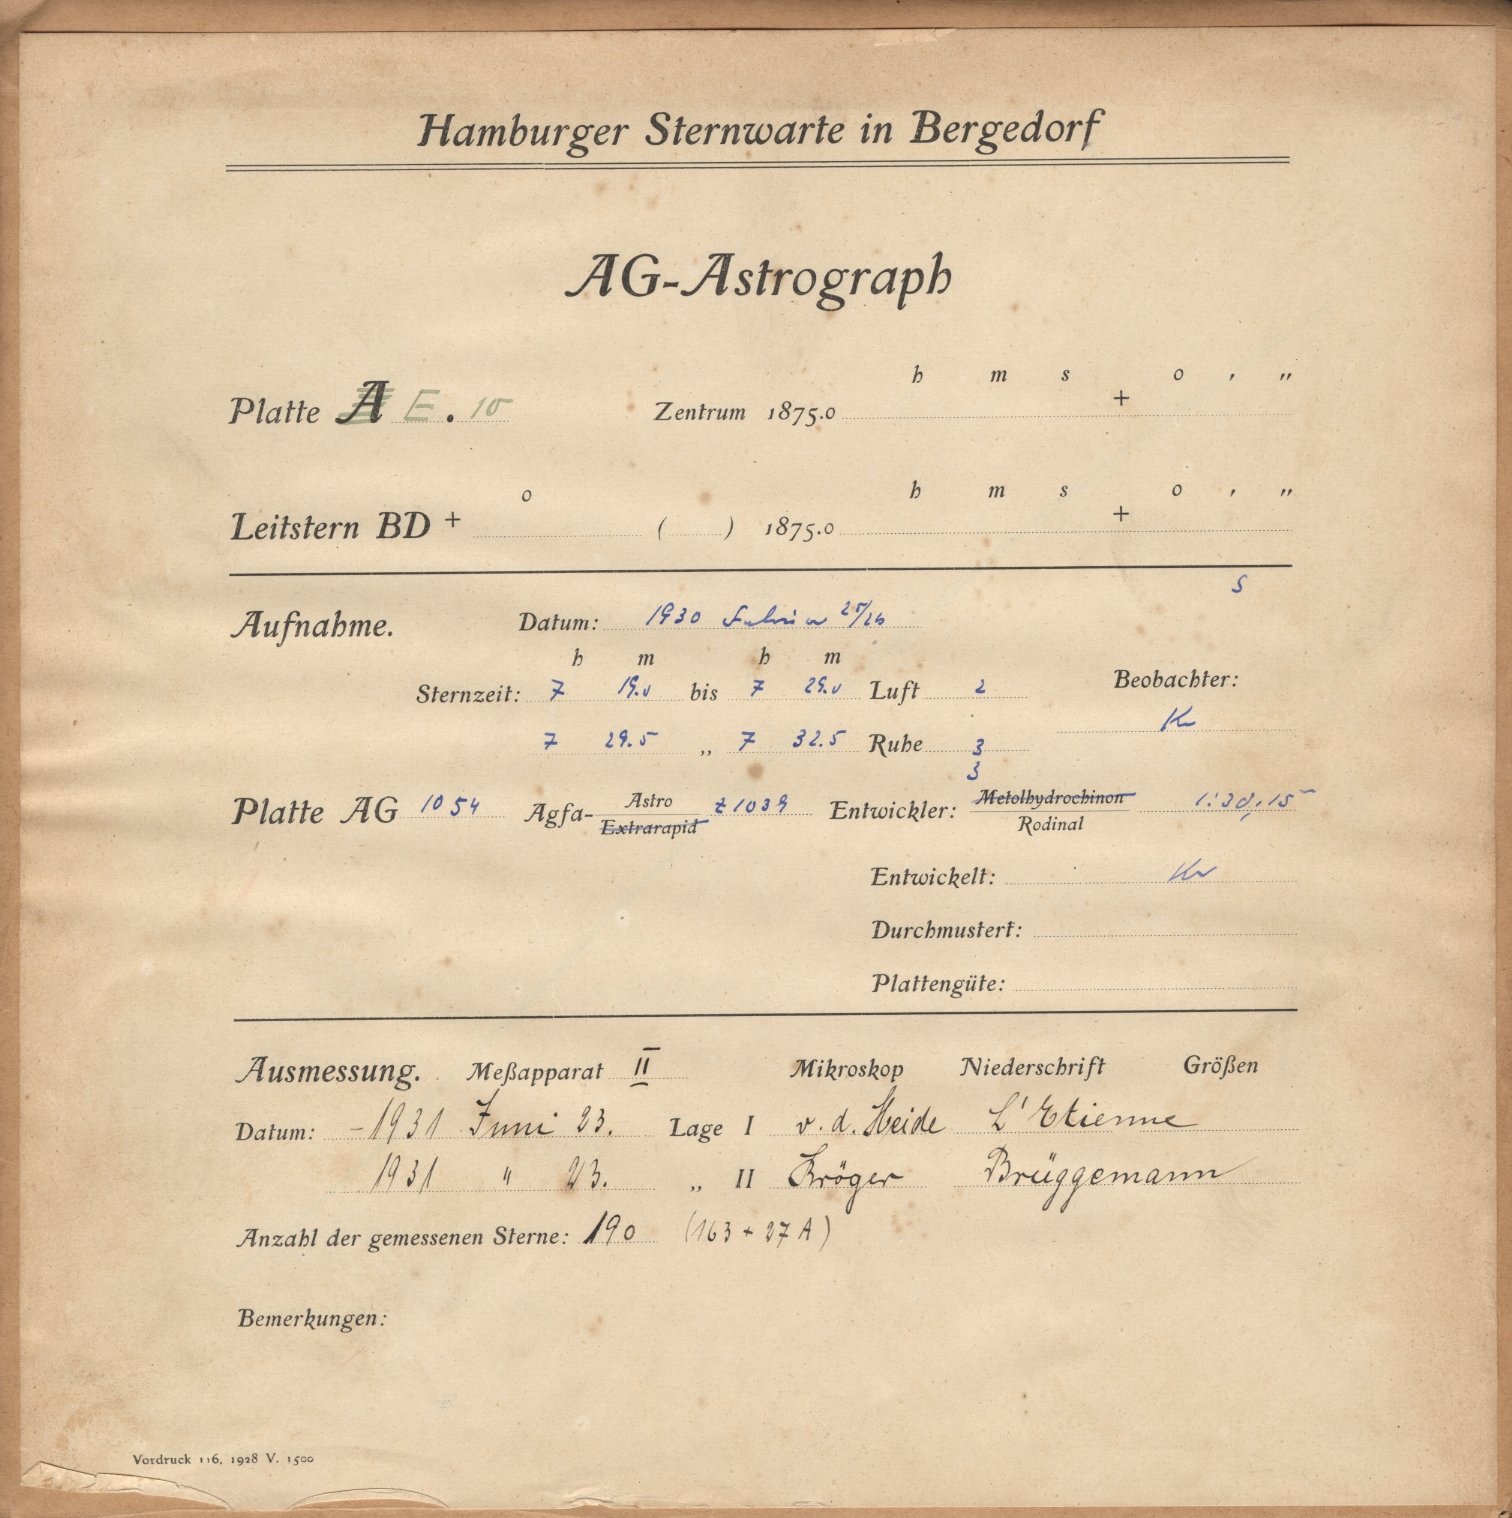 Hamburger Sternwarte in Bergedorf
AG-Astrograph
h m s o ' "
Platte A E . 10 Zentrum 1875.0 +
o h m s o ' "
Leitstern BD + ( ) 1875.0 +
S
Aufnahme. Datum: 1930 Februar 25/26
h m h m
Sternzeit: 7 19.0 bis 7 29.0 Luft 2 Beobachter:
Kr
7 29.5 „ 7 32.5 Ruhe 3
3
Platte AG 1054 Agfa- Astro Extrarapid 1039 Entwickler: Metolhydrochinon Rodinal 1:30, 15
Entwickelt: Kr
Durchmustert:
Plattengüte:
Ausmessung. Meßapparat II Mikroskop Niederschrift Größen
Datum: 1931 Juni 23. Lage I v. d. Heide L'Etienne
1931 " 23. „ II Kröger Brüggemann
Anzahl der gemessenen Sterne: 190 (163 + 27 A)
Bemerkungen:
Vordruck 116. 1928 V. 1500